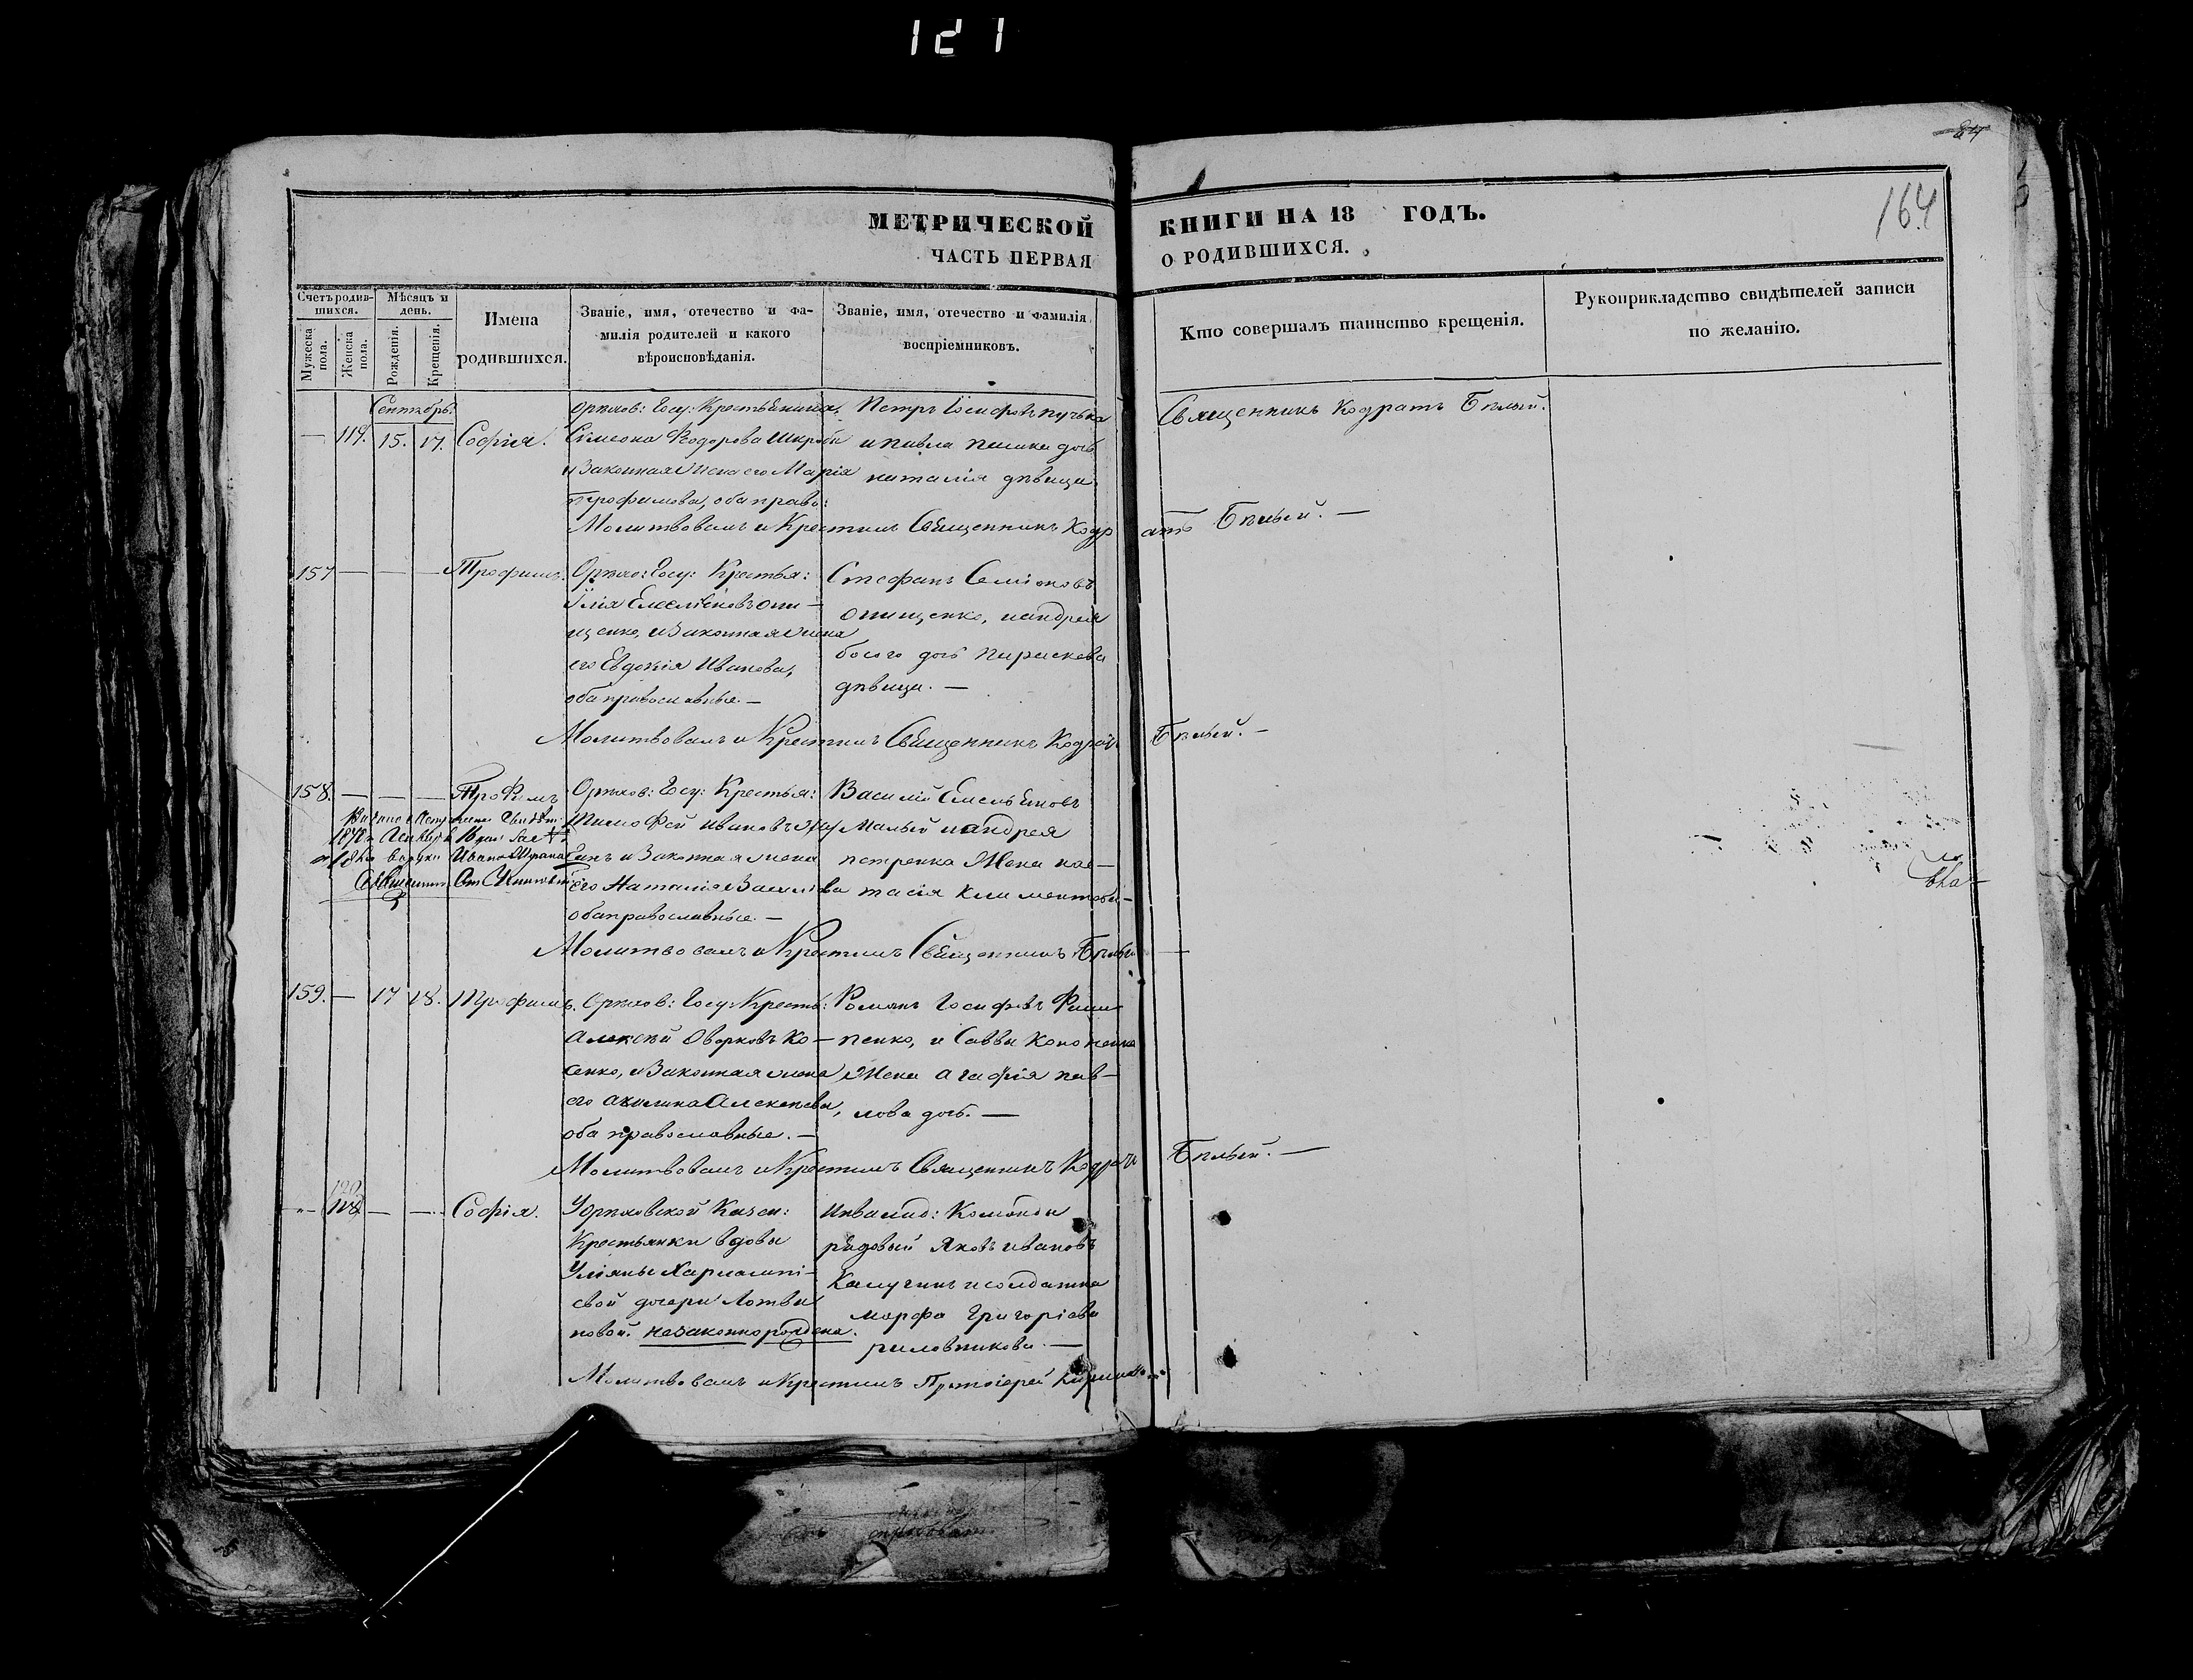 121
МЕТРИЧЕСКОЙ КНИГИ НА 18 ГОДЪ.
ЧАСТЬ ПЕРВАЯ О РОДИВШИХСЯ.
164
Счетъ родившихся.
Мѣсяцъ и день.
Мужеска пола.
Женска пола.
Рожденія.
Крещенія.
Имена родившихся.
Званіе, имя, отечество и фамилія родителей и какого вѣроисповѣданія.
Званіе, имя, отечество и фамилія воспріемниковъ.
Кто совершалъ таинство крещенія.
Рукоприкладство свидѣтелей записи по желанію.
Сентябрь.
— 119. 15. 17. Софія.
Орѣхов: Госу: Крестьянина,
Симеона Ѳеодорова
и Законная жена его Марія
Трофимова, оба право:
Петръ Іосифовъ
и павла дочь
наталія дѣвица
Священникъ Кодратъ Бѣлый.
Молитвовалъ и Крестилъ Священникъ Кодратъ Бѣлый. —
157 — — — Трофимъ.
Орѣхо: Госу: Крестья:
Илія Емельяновъ Они—
щенко, и Законная жена
его Евдокія Иванова,
оба православные. —
Стефанъ Симіоновъ
Онищенко, и андрея
босого дочь параскева
дѣвица. —
Молитвовалъ и Крестилъ Священникъ Кодратъ Бѣлый. —
158. — — — Трофимъ
Орѣхов: Госу: Крестья:
Тимофей Ивановъ
и Законная жена
его Наталія Василева
оба православные. —
Василій Емельяновъ
Малый и андрея
петренка Жена нас—
тасія Климентова —
Молитвовалъ и Крестилъ Священникъ Бѣлый —
159. — 17 18. Трофимъ.
Орѣхов: Госу: Кресть:
Алексѣй Ко—
сенко, и Законная жена
его акилина Алексѣева,
оба православные. —
Романъ Іосифовъ Фили
пенко, и Саввы Кононенка
Жена агафія пав—
лова дочь. —
Молитвовалъ и Крестилъ Священникъ Кодратъ Бѣлый. —
120
— — — Софія.
Уорѣховской Казен:
Крестьянки вдовы
Уліяны Харлампі—
евой дочери Литви
новой. незаконнорождена.
Инвалид: Команды
рядовый Яковъ Ивановъ
Калугинъ и солдатка
марфа Григоріева
Молитвовалъ и Крестилъ Протоіерей